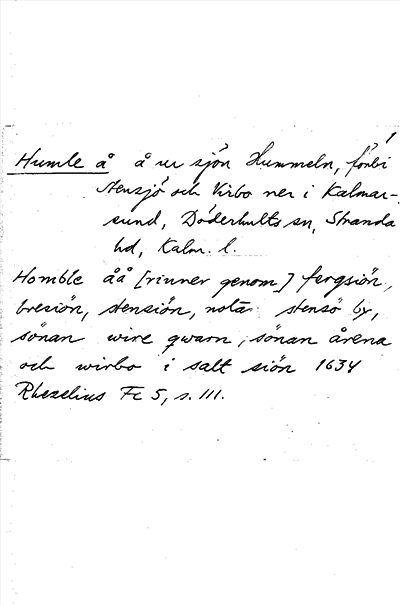 1
Humle å å ur sjön Hummeln, förbi
Stensjö och Virbo ner i Kalmar-
sund, Döderhults sn, Stranda
hd, Kalm. l.
Homble åå [rinner genom] fergsiön,
bresiön, stensiön, nota stensö by,
sönan wire qwarn, sönan årena
och wirbo i salt siön 1634
Rhezelius Fc 5, s. 111.